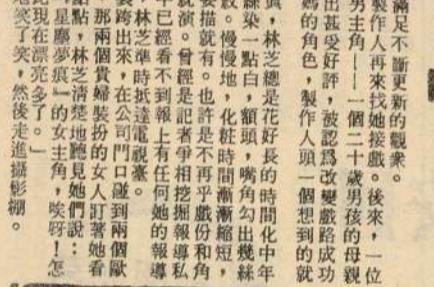 滿足不斷更新的觀衆。
製作人再來找她接戲。後來,一位
男主角——一個二十歲男孩的母親
出甚受好評,被認爲改變戲路成功
媽的角色,製作人頭一個想到的就
演,林芝總是花好長的時間化中年
絲染一點白,額頭,嘴角勾出幾絲
紋。慢慢地,化粧時間漸漸縮短,
要描就有。也許是不再乎戲份和角
就演。曾經是記者爭相挖掘報導私
年已經看不到報上有任何她的報導
,林芝準時抵達電視臺。
裝跨出來,在公司門口碰到兩個歐
那兩個貴婦裝扮的女人盯著她看
點,林芝清楚地聽見她們說:
星塵夢痕』的女主角,唉呀!怎
比現在漂亮多了。」
地笑了笑,然後走進攝影棚。